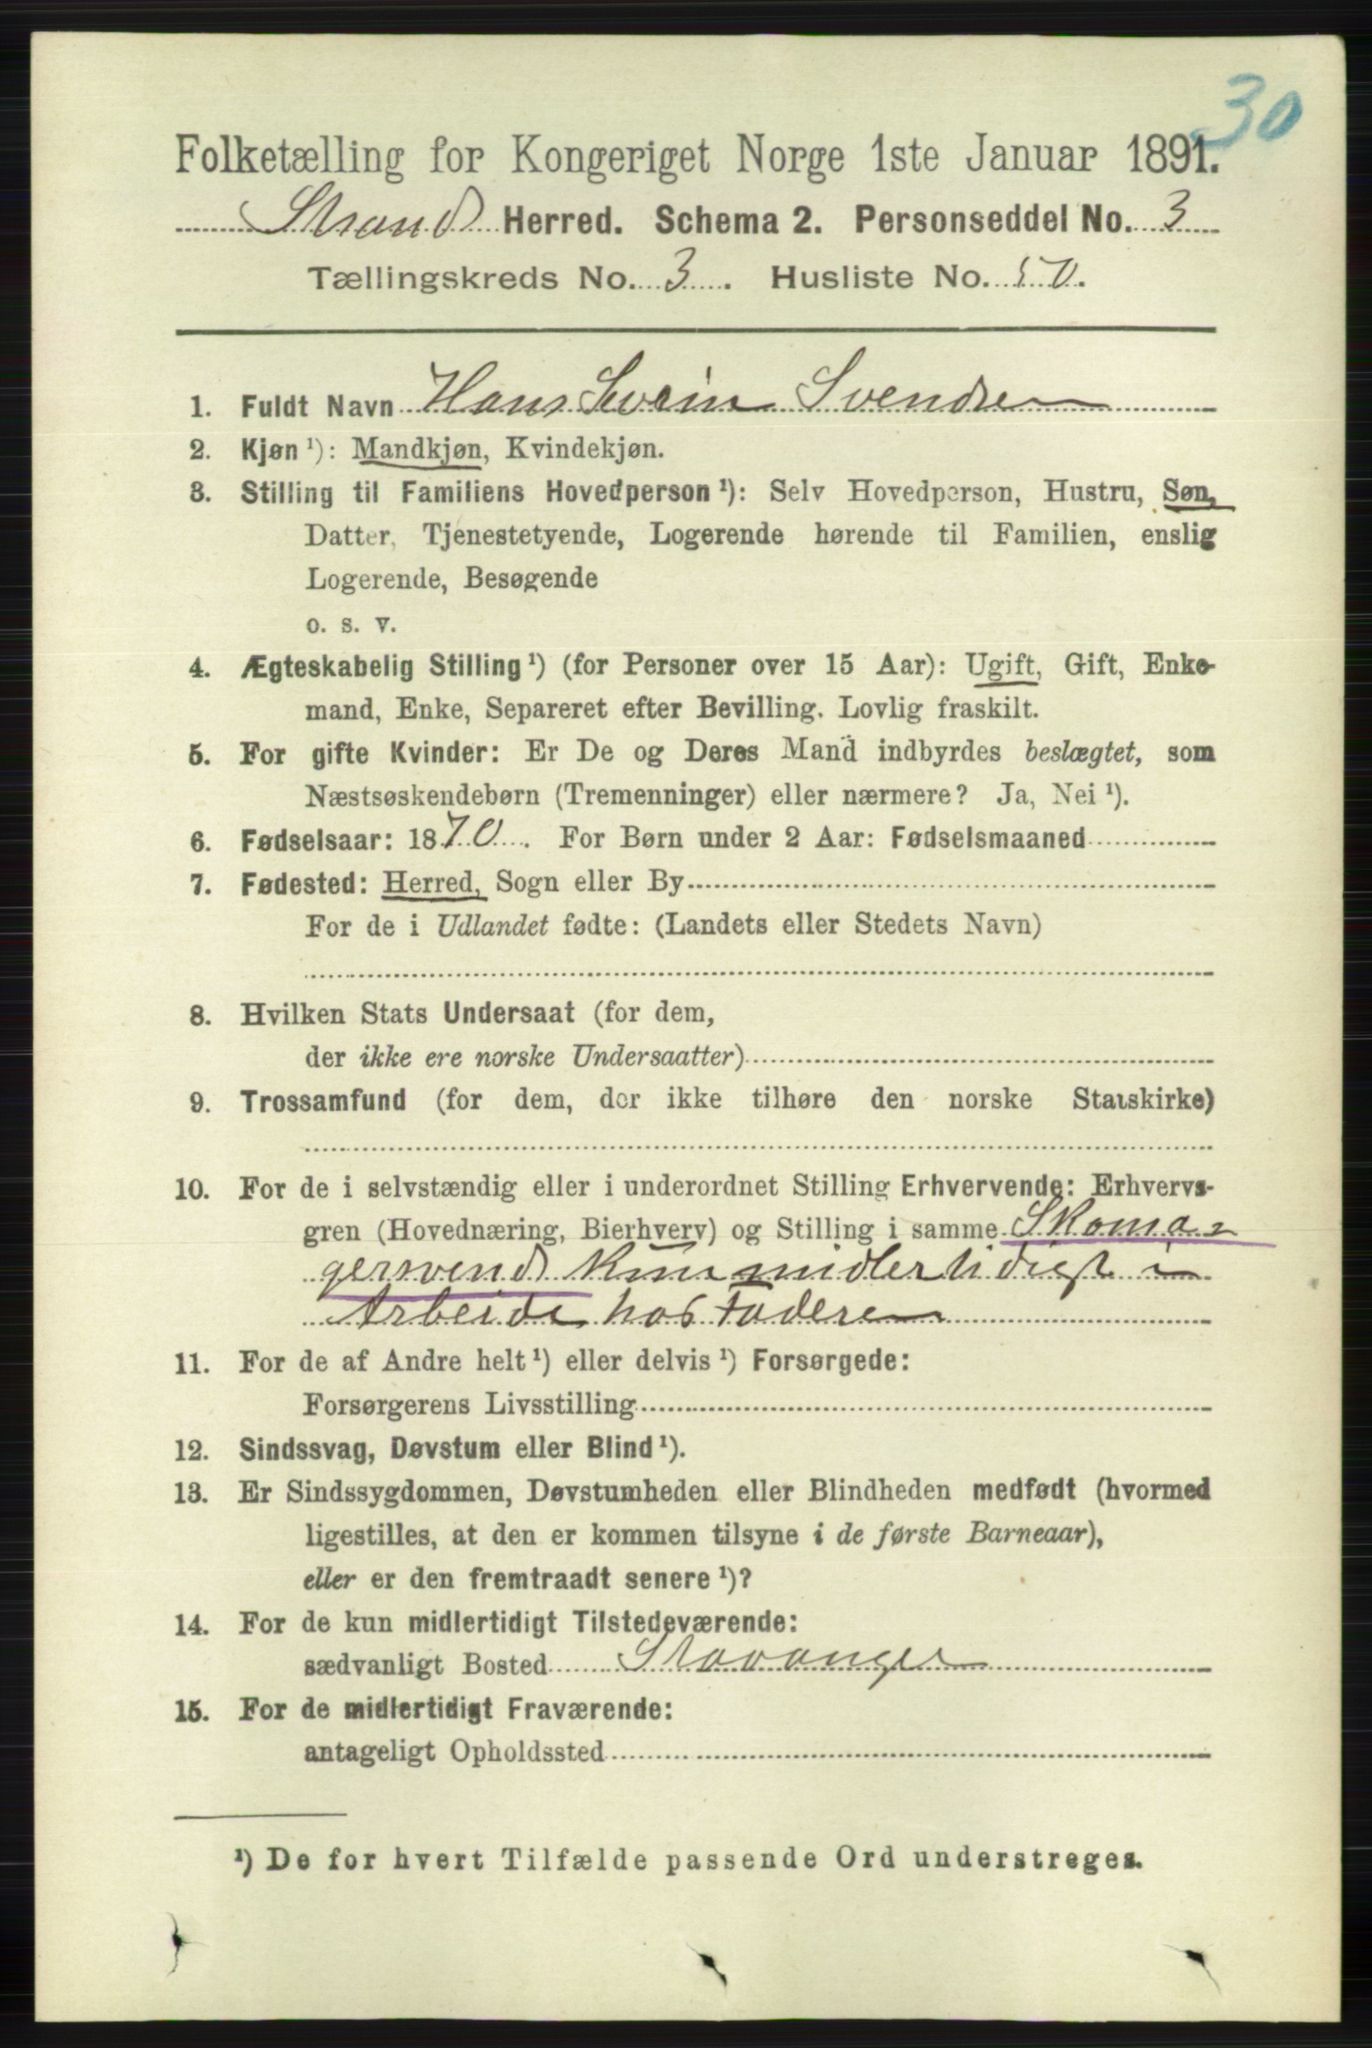 30
Folketælling for Kongeriget Norge 1ste Januar 1891.
Strand Herred. Schema 2. Personseddel No. 3
Tællingskreds No. 3. Husliste No. 50.
1. Fuldt Navn Hans Sverin Svendsen
2. Kjøn ¹): Mandkjøn, Kvindekjøn.
3. Stilling til Familiens Hovedperson ¹): Selv Hovedperson, Hustru, Søn,
Datter, Tjenestetyende, Logerende hørende til Familien, enslig
Logerende, Besøgende
o. s. v.
4. Ægteskabelig Stilling ¹) (for Personer over 15 Aar): Ugift, Gift, Enke-
mand, Enke, Separeret efter Bevilling. Lovlig fraskilt.
5. For gifte Kvinder: Er De og Deres Mand indbyrdes beslægtet, som
Næstsøskendebørn (Tremenninger) eller nærmere? Ja, Nei ¹).
6. Fødselsaar: 1870. For Børn under 2 Aar: Fødselsmaaned
7. Fødested: Herred, Sogn eller By
For de i Udlandet fødte: (Landets eller Stedets Navn)
8. Hvilken Stats Undersaat (for dem,
der ikke ere norske Undersaatter)
9. Trossamfund (for dem, der ikke tilhøre den norske Statskirke)
10. For de i selvstændig eller i underordnet Stilling Erhvervende: Erhvervs-
gren (Hovednæring, Bierhverv) og Stilling i samme Skoma-
gersvend kun midlertidigt i
Arbeide hos Faderen
11. For de af Andre helt ¹) eller delvis ¹) Forsørgede:
Forsørgerens Livsstilling
12. Sindssvag, Døvstum eller Blind ¹).
13. Er Sindssygdommen, Døvstumheden eller Blindheden medfødt (hvormed
ligestilles, at den er kommen tilsyne i de første Barneaar),
eller er den fremtraadt senere ¹)?
14. For de kun midlertidigt Tilstedeværende:
sædvanligt Bosted Stavanger
15. For de midlertidigt Fraværende:
antageligt Opholdssted
¹) De for hvert Tilfælde passende Ord understreges.